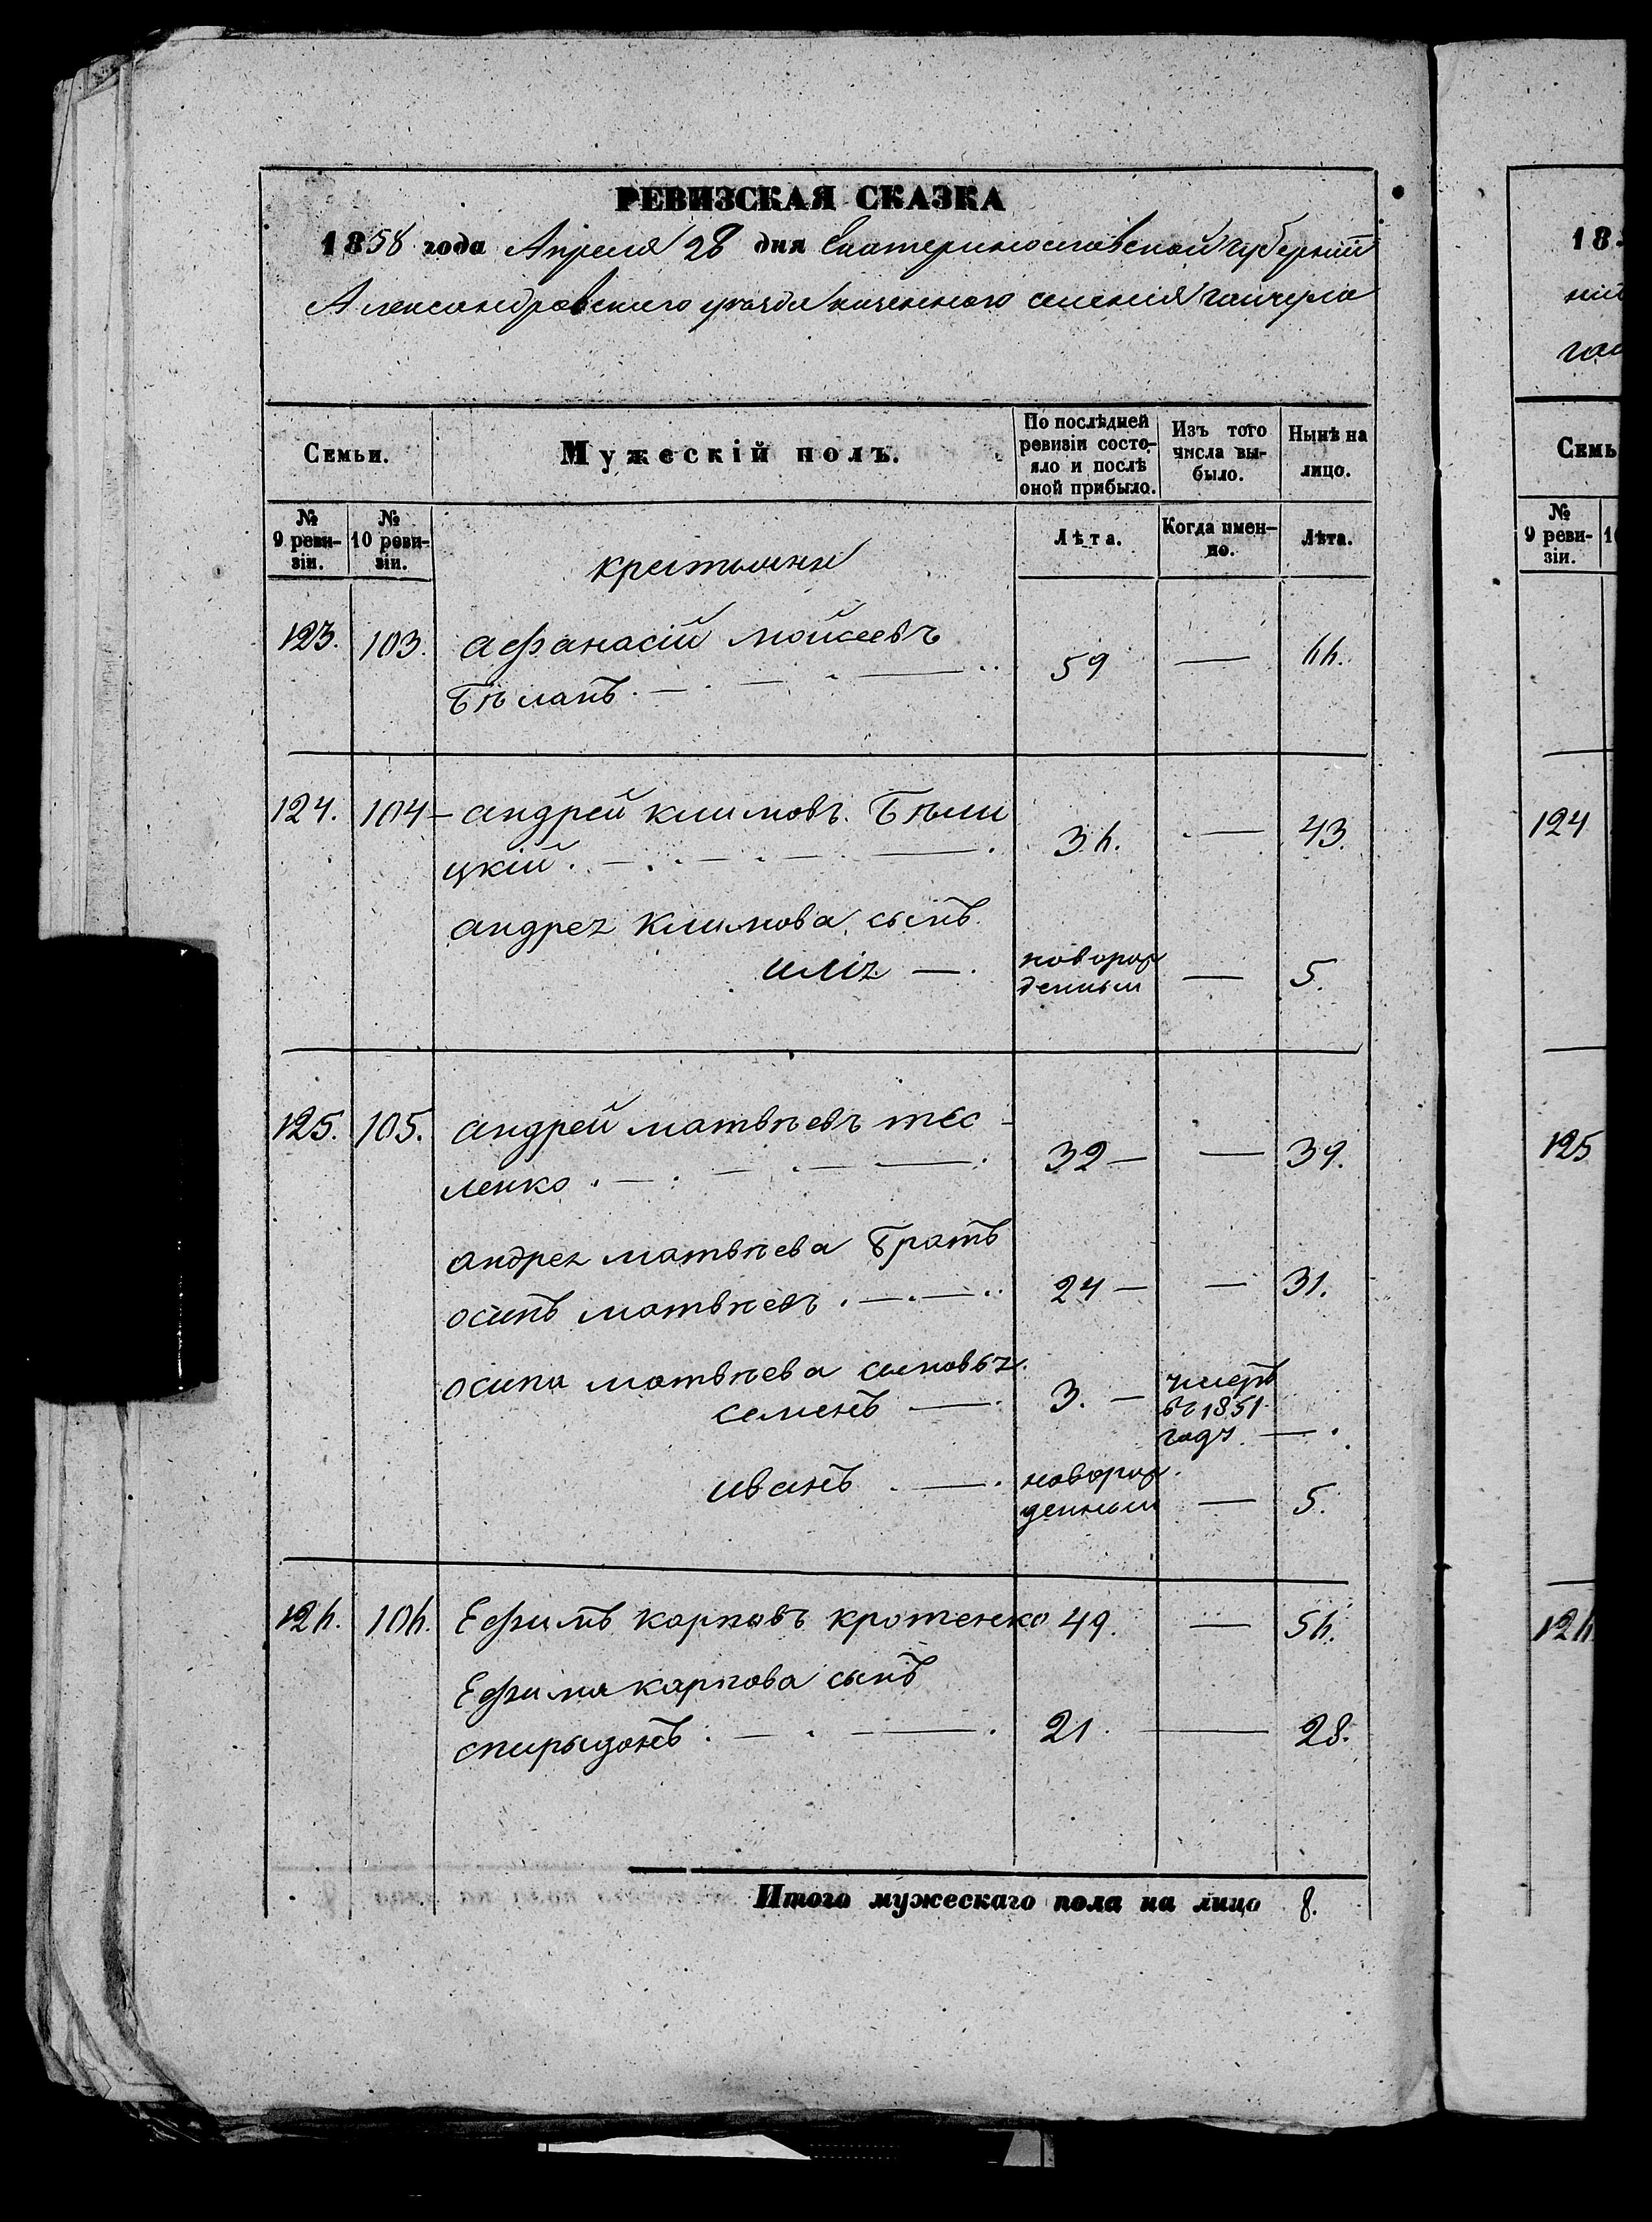 РЕВИЗСКАЯ СКАЗКА
1858 года Апреля 28 дня Екатеринославской губерніи
Александровскаго уезда казенного селенія гайчула
Семьи.
Мужескій полъ.
По послѣдней ревизіи состояло и послѣ оной прибыло.
Изъ того числа выбыло.
Нынѣ на лицо.
№ 9 ревизіи.
№ 10 ревизіи.
Лѣта.
Когда именно.
Лѣта.
крестьяни
123. 103. афанасій мойсеевъ
бѣлапъ 59 — 66.
124. 104 андрей климовъ бѣли
цкій 36. — 43.
андрея климова сынъ
илія — новорож
денный — 5.
125. 105. андрей матвѣевъ тес-
ленко 32 — — 39.
андрея матвѣева братъ
осипъ матвѣевъ 24 — — 31.
осипа матвѣева сыновья
семенъ — 3. — умеръ
въ 1851
году — .
иванъ — новорож
денный — 5.
126. 106. Ефимъ карповъ кротенко 49. — 56.
Ефима карпова сынъ
спирыдонъ 21. — 28.
Итого мужескаго пола на лицо 8.
18
гай
Семь
№ 9 ревизіи.
124
125
126